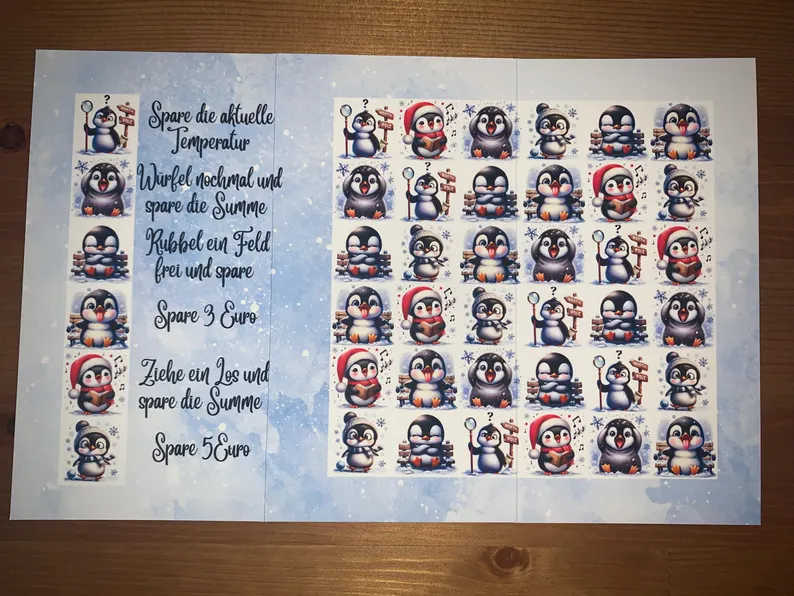 Spare die aktuelle
Temperatur
Würfel nochmal und
spare die Summe
Rubbel ein Feld
frei und spare
Spare 3 Euro
Ziehe ein Los und
spare die Summe
Spare 5Euro